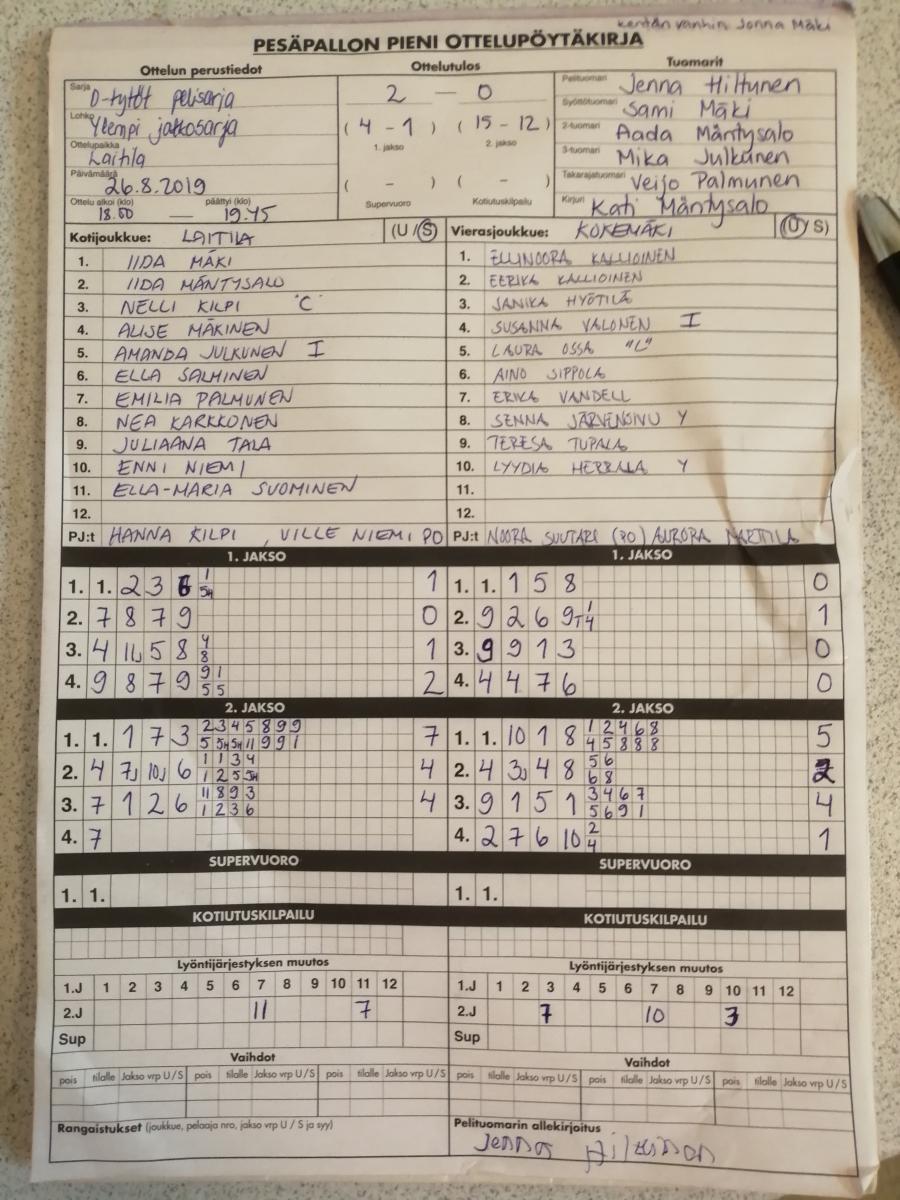 kentän vanhin Jonna Mäki
PESÄPALLON PIENI OTTELUPÖYTÄKIRJA
Ottelun perustiedot Ottelutulos Tuomarit
Sarja D-tytöt pelisarja 2 — 0 Pelituomari Jenna Hiltunen
Lohko Ylempi jatkosarja ( 4 - 1 ) ( 15 - 12 ) Syöttötuomari Sami Mäki
1. jakso 2. jakso 2-tuomari Aada Mäntysalo
Ottelupaikka Laitila 3-tuomari Mika Julkunen
Päivämäärä 26.8.2019 ( - ) ( - ) Takarajatuomari Veijo Palmunen
Ottelu alkoi (klo) päättyi (klo) Supervuoro Kotiutuskilpailu
18.00 — 19.45 Kirjuri Kati Mäntysalo
Kotijoukkue: LAITILA (U / S) Vierasjoukkue: KOKEMÄKI (U / S)
1. IIDA MÄKI 1. ELLINOORA KALLIOINEN
2. IIDA MÄNTYSALO 2. EERIKA KALLIOINEN
3. NELLI KILPI "C" 3. JANIKA HYÖTILÄ
4. ALISE MÄKINEN 4. SUSANNA VALONEN I
5. AMANDA JULKUNEN I 5. LAURA OSSA "L"
6. ELLA SALMINEN 6. AINO SIPPOLA
7. EMILIA PALMUNEN 7. ERIKA VANDELL
8. NEA KARKKONEN 8. SENNA JÄRVENSIVU Y
9. JULIAANA TALA 9. TERESA TUPALA
10. ENNI NIEMI 10. LYYDIA Y
11. ELLA-MARIA SUOMINEN 11.
12. 12.
PJ:t HANNA KILPI , VILLE NIEMI PO PJ:t NOORA SUUTARI (PO) AURORA
1. JAKSO 1. JAKSO
1. 1. 2 3 6 1 1. 1. 1 5 8 0
1
5H
2. 7 8 7 9 0 2. 9 2 6 9 1
1
T4
3. 4 11 5 8 1 3. 9 9 1 3 0
4
8
4. 9 8 7 9 2 4. 4 4 7 6 0
9 1
5 5
2. JAKSO 2. JAKSO
1. 1. 1 7 3 7 1. 1. 10 1 8 5
2 3 4 5 8 9 9 1 2 4 6 8
5 5H 5H 11 9 9 1 4 5 8 8 8
2. 4 7J 10J 6 4 2. 4 3J 4 8 2
1 1 3 4 5 6
1 2 5 5H 6 8
3. 7 1 2 6 4 3. 9 1 5 1 4
11 8 9 3 3 4 6 7
1 2 3 6 5 6 9 1
4. 7 4. 2 7 6 10 1
2
4
SUPERVUORO SUPERVUORO
1. 1. 1. 1.
KOTIUTUSKILPAILU KOTIUTUSKILPAILU
Lyöntijärjestyksen muutos Lyöntijärjestyksen muutos
1.J 1 2 3 4 5 6 7 8 9 10 11 12 1.J 1 2 3 4 5 6 7 8 9 10 11 12
2.J 11 7 2.J 7 10 3
Sup Sup
Vaihdot Vaihdot
pois tilalle Jakso vrp U / S pois tilalle Jakso vrp U / S pois tilalle Jakso vrp U / S pois tilalle Jakso vrp U / S pois tilalle Jakso vrp U / S pois tilalle Jakso vrp U / S
Rangaistukset (joukkue, pelaaja nro, jakso vrp U / S ja syy) Pelituomarin allekirjoitus
Jenna Hiltunen